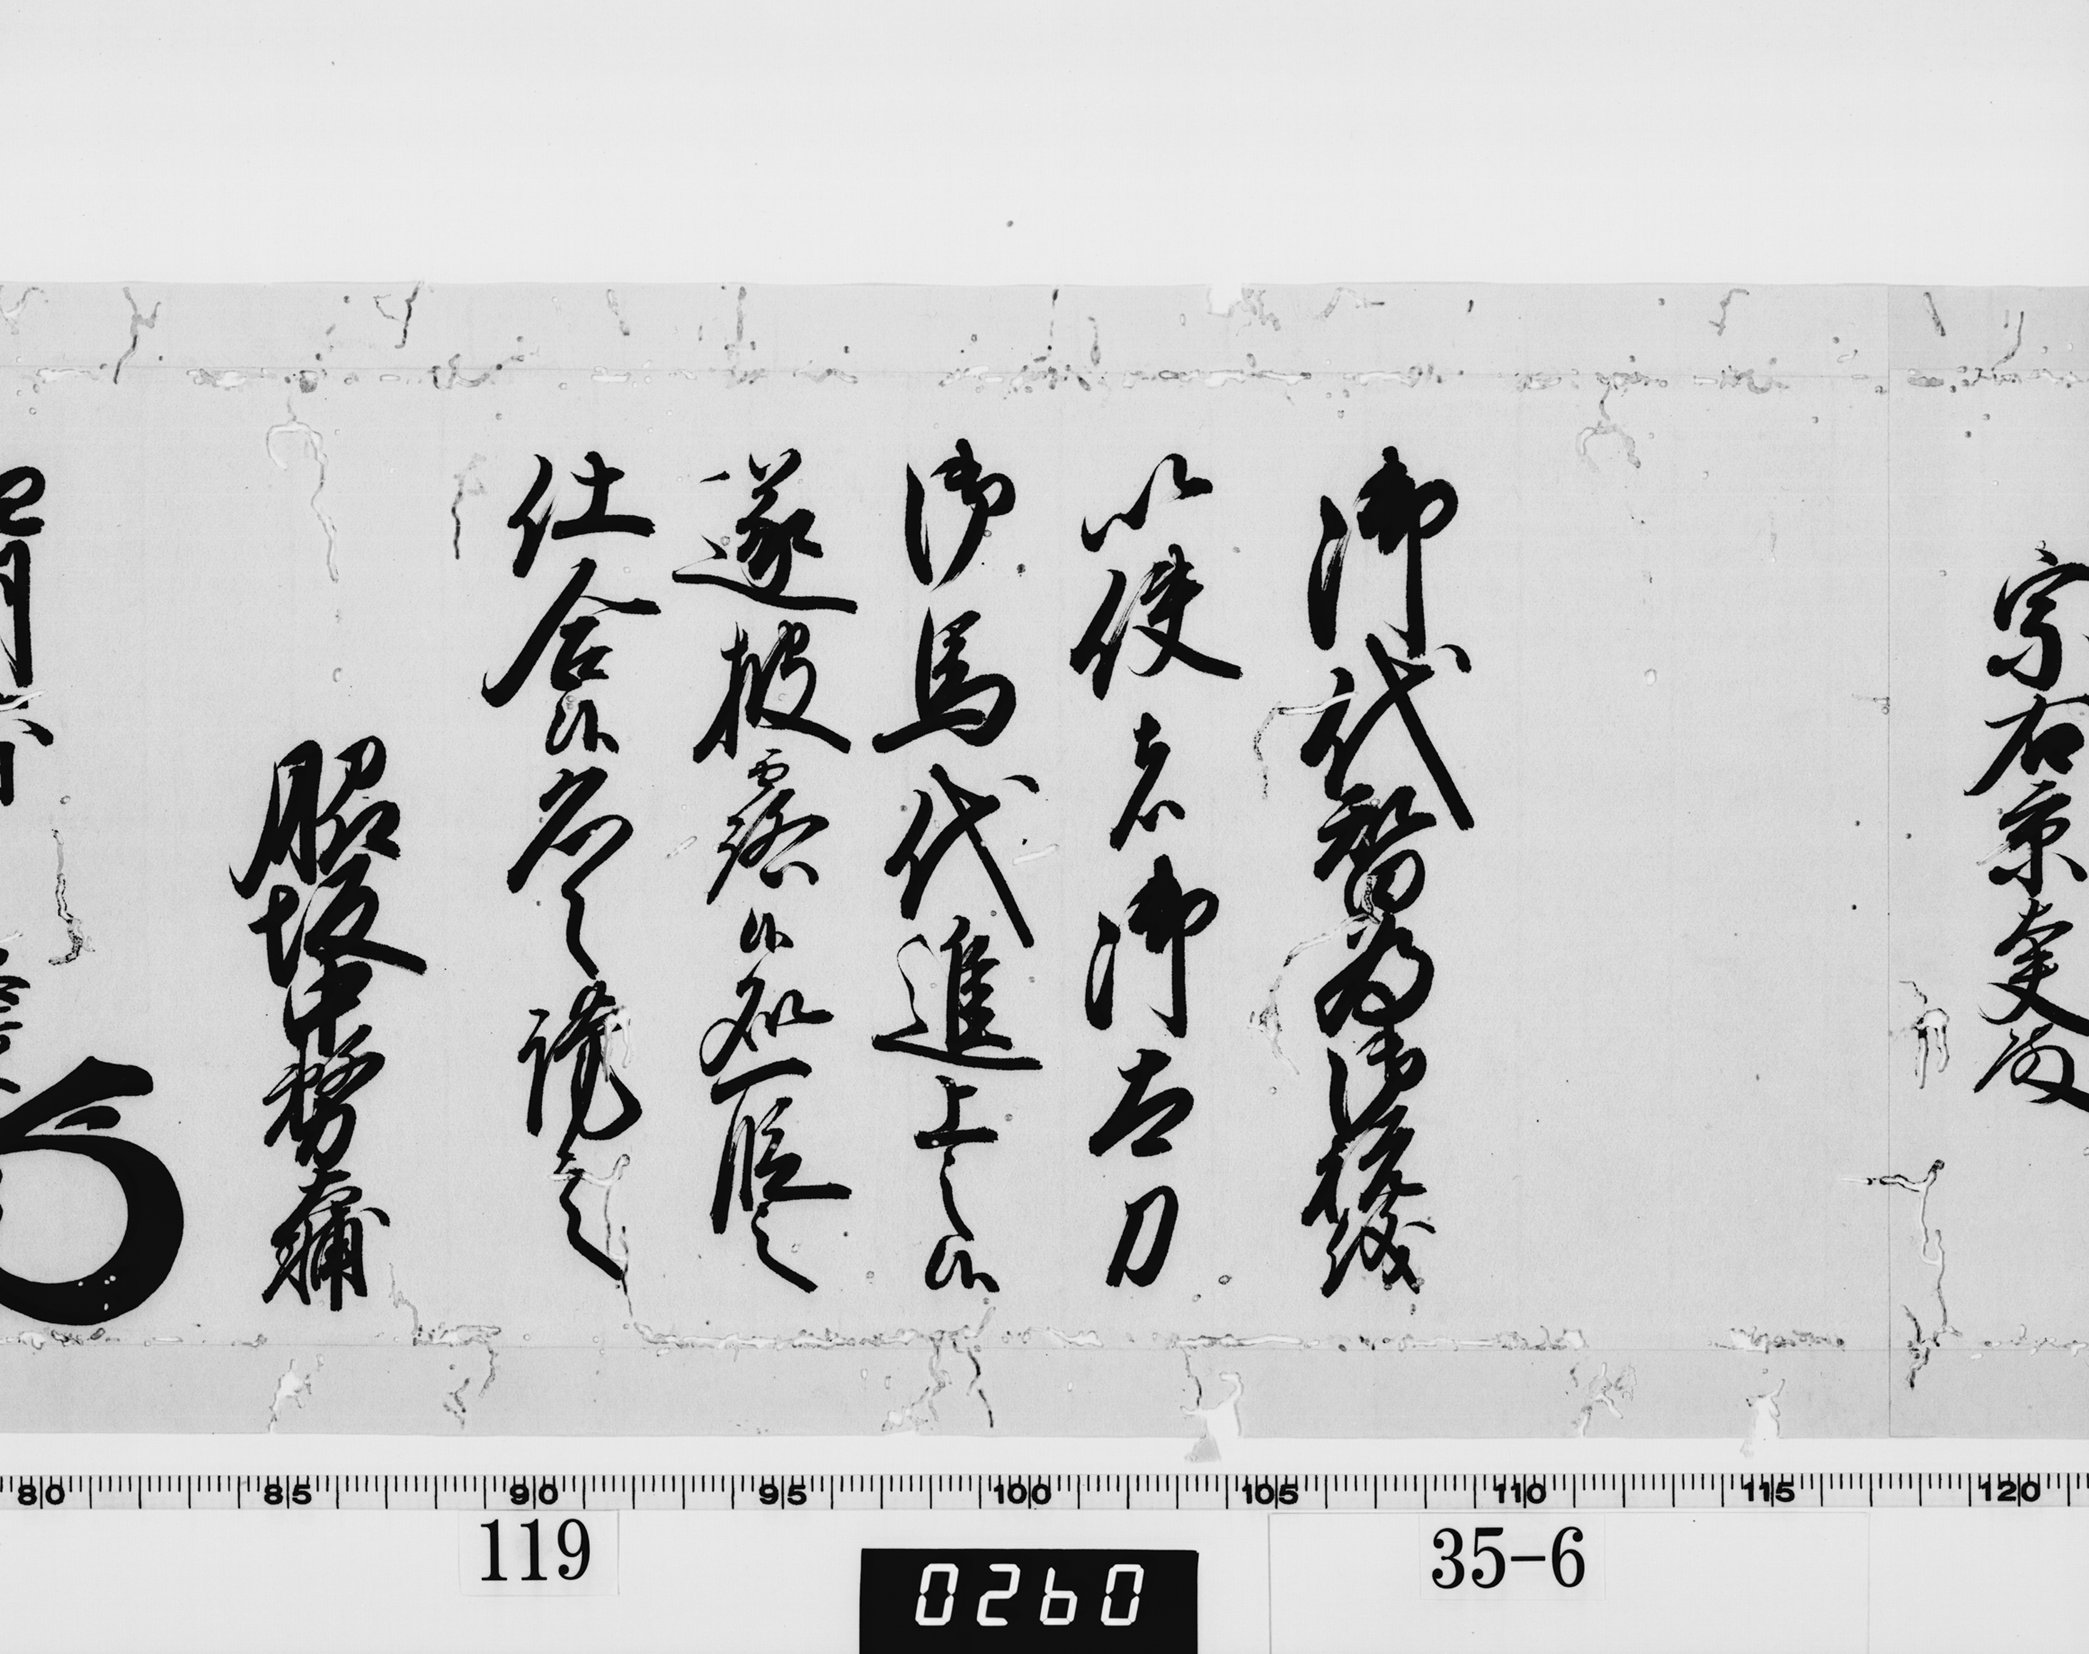 宗右京大夫殿
御代替為御祝儀
以使者御太刀
御馬代進上之候
遂披露候処一段之
仕合候恐々謹言
脇坂中務大輔
80 85 90 95 100 105 110 115 120
119
0260
35-6